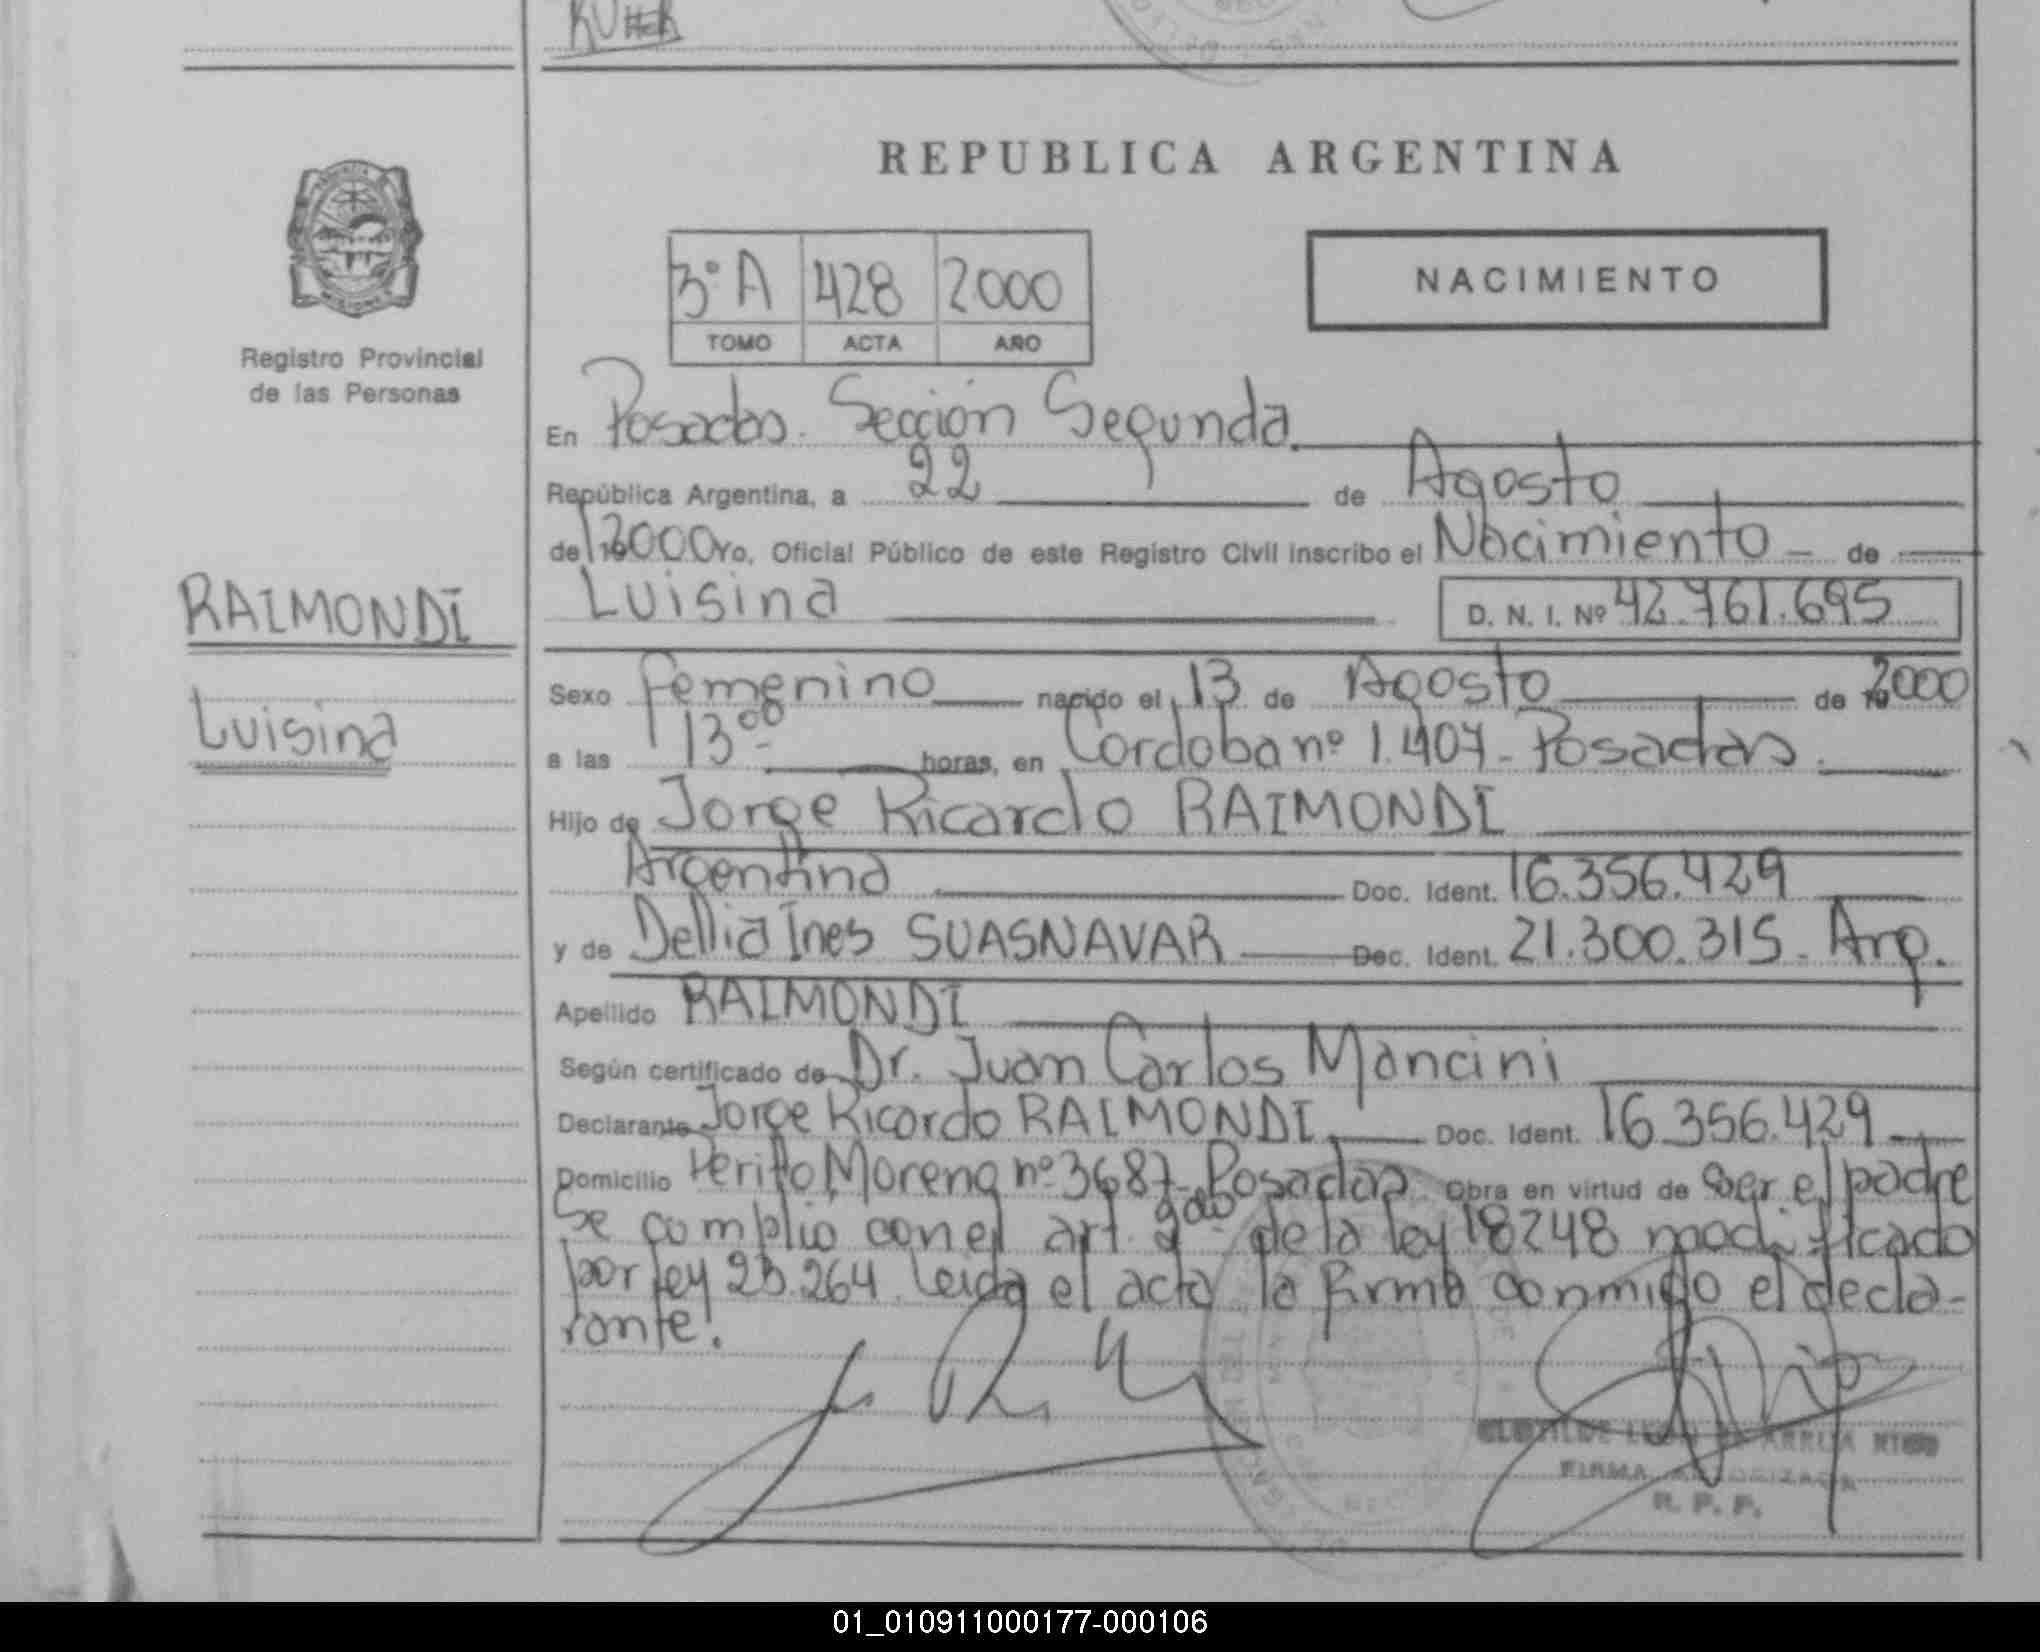 REPUBLICA ARGENTINA
3º A 428 2000
TOMO ACTA AÑO
NACIMIENTO
Registro Provincial
de las Personas
En Posadas. Sección Segunda
República Argentina, a 22 de Agosto
de 2000 Yo, Oficial Público de este Registro Civil inscribo el Nacimiento de
Luisina D. N. I. Nº 42.761.695
RAIMONDI
Luisina
Sexo femenino nacido el 13 de Agosto de 2000
a las 13 00 horas, en Cordoba nº 1.407 - Posadas.
Hijo de Jorge Ricardo RAIMONDI
Argentina Doc. Ident. 16.356.429
y de Dellia Ines SUASNAVAR Doc. Ident. 21.300.315 - Arg.
Apellido RAIMONDI
Según certificado de Dr. Juan Carlos Mancini
Declarante Jorge Ricardo RAIMONDI Doc. Ident. 16.356.429
Domicilio Perito Moreno nº 3687 - Posadas Obra en virtud de ser el padre
Se complio con el art. 2do de la ley 18248 modificado
por ley 23.264 Leida el acta la firma conmigo el decla-
rante.
FIRMA AUTORIZADA
R. P. P.
01_010911000177-000106